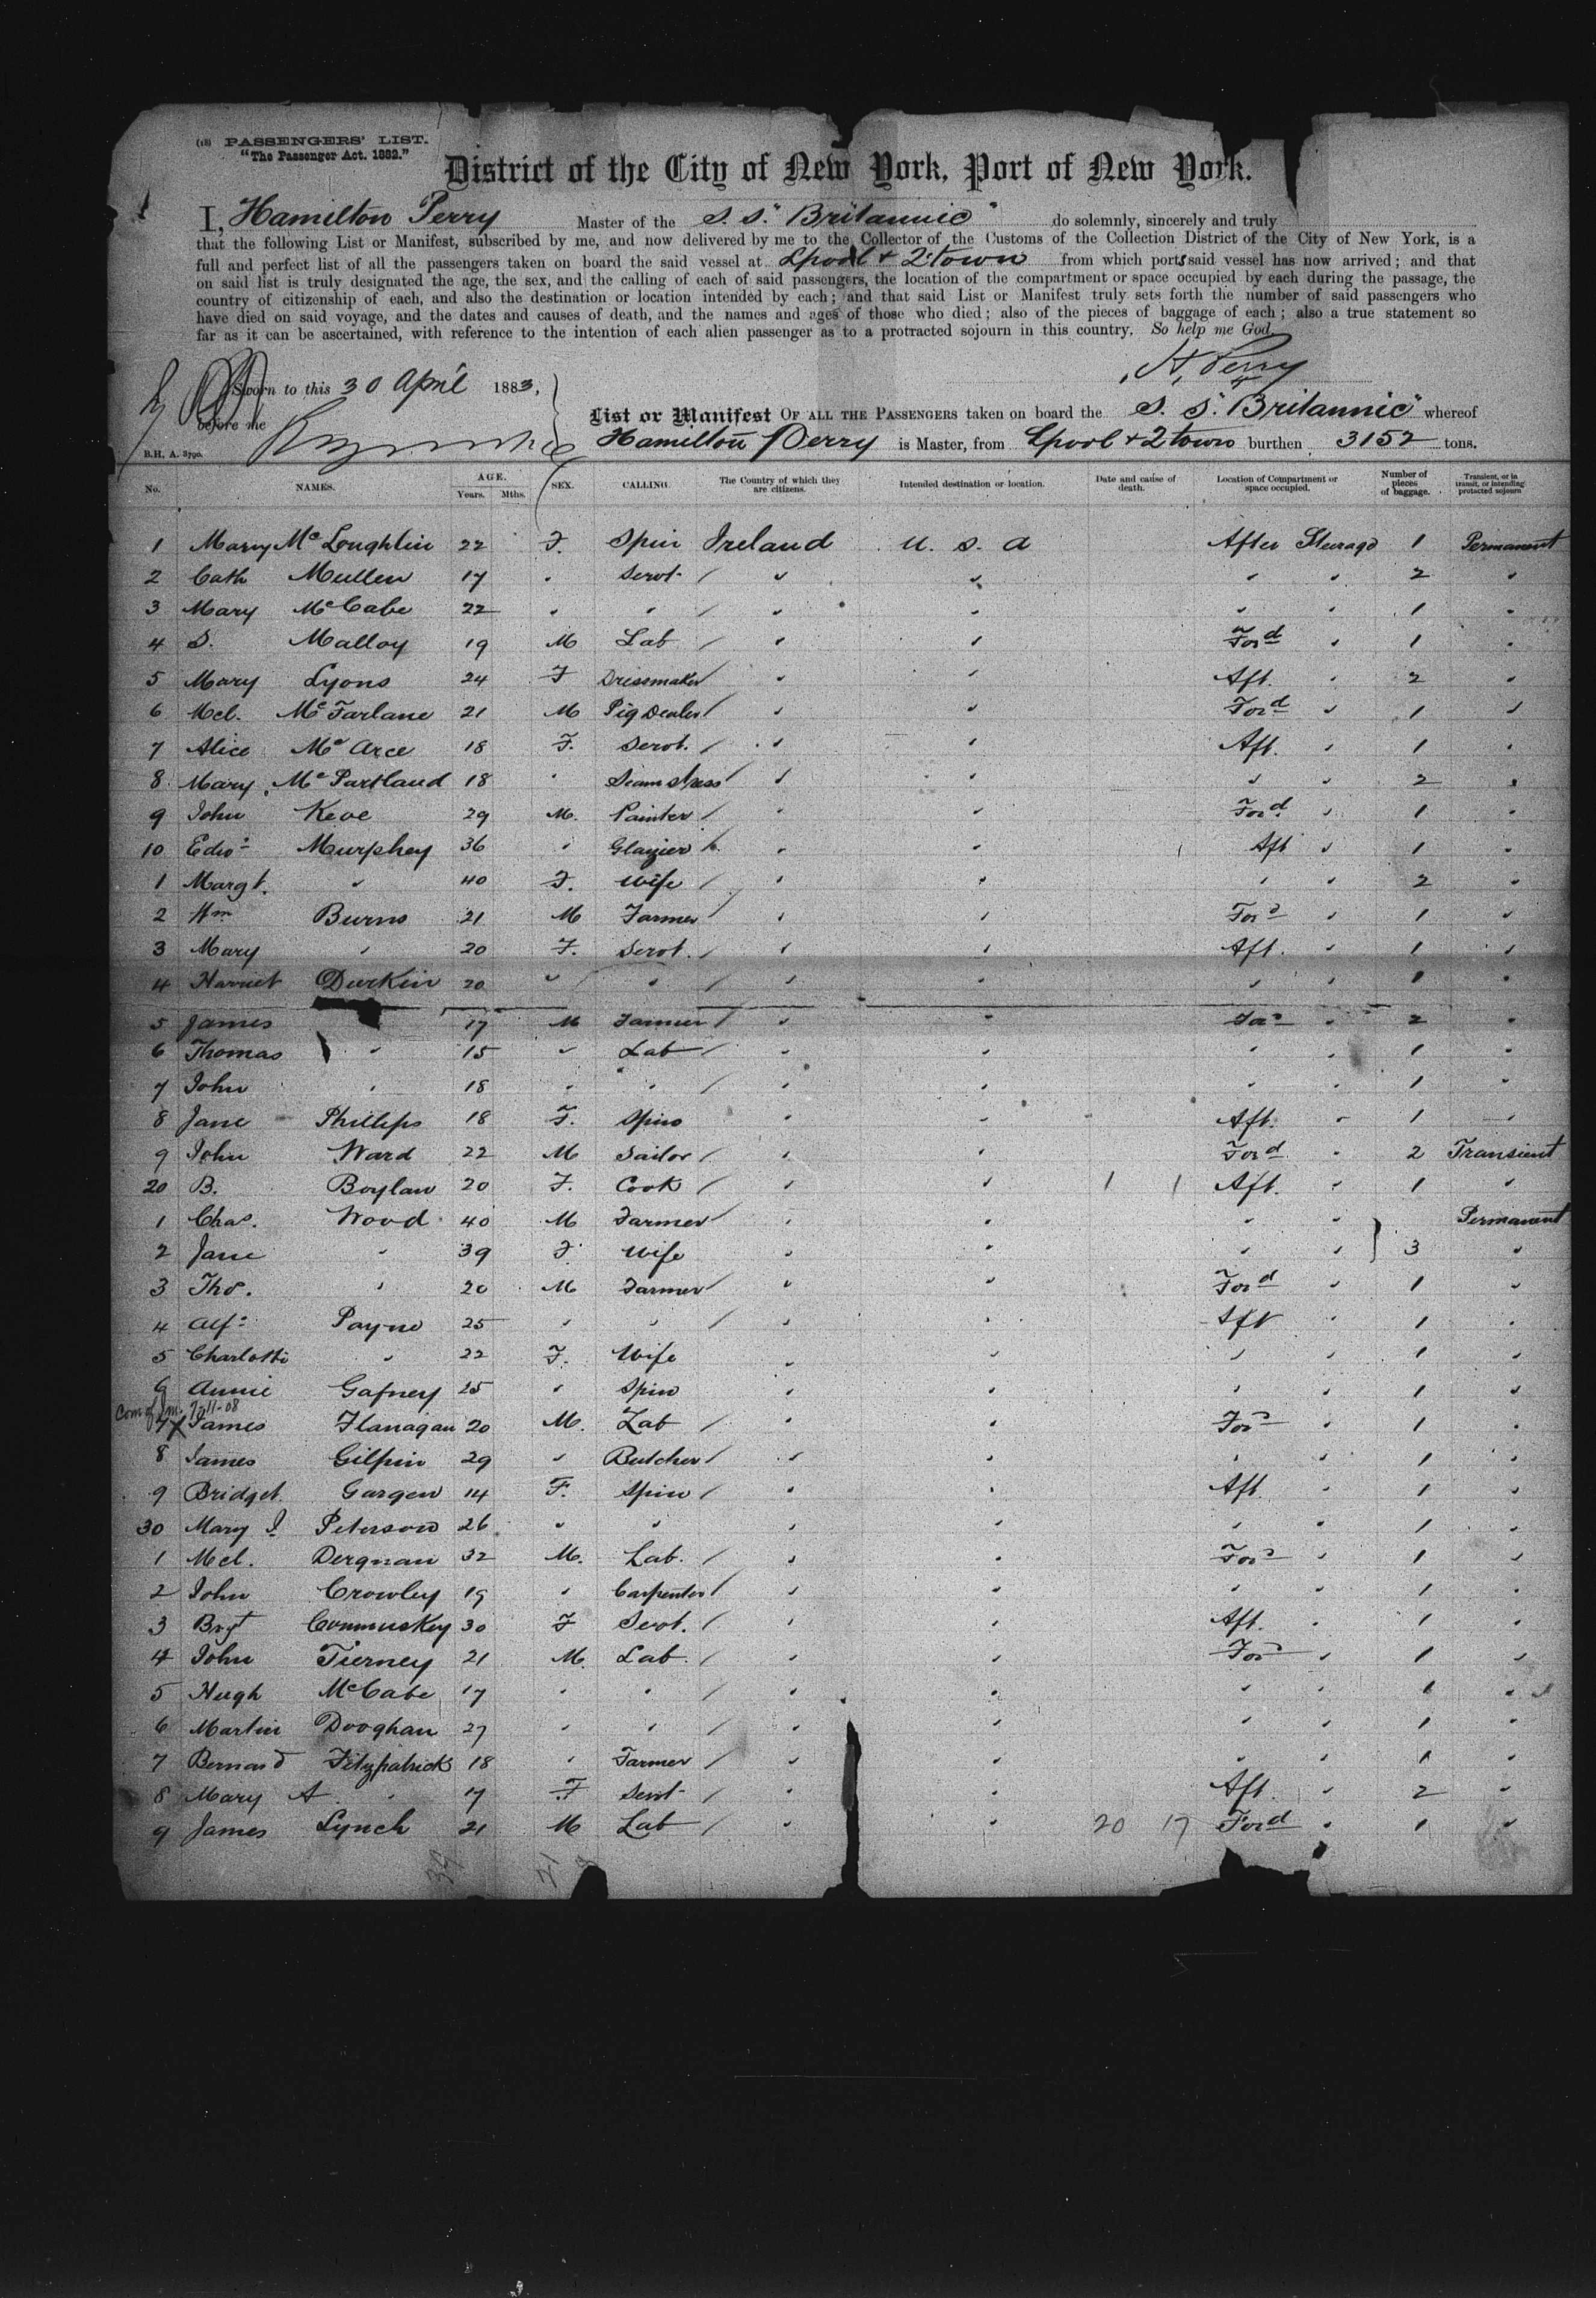 (18) PASSENGERS' LIST.
"The Passenger Act. 1882."
District of the City of New York, Port of New York.
I, Hamilton Perry Master of the S. S. "Britannic" do solemnly, sincerely and truly
that the following List or Manifest, subscribed by me, and now delivered by me to the Collector of the Customs of the Collection District of the City of New York, is a
full and perfect list of all the passengers taken on board the said vessel at Lpool & Q:town from which ports said vessel has now arrived; and that
on said list is truly designated the age, the sex, and the calling of each of said passengers, the location of the compartment or space occupied by each during the passage, the
country of citizenship of each, and also the destination or location intended by each; and that said List or Manifest truly sets forth the number of said passengers who
have died on said voyage, and the dates and causes of death, and the names and ages of those who died; also of the pieces of baggage of each; also a true statement so
far as it can be ascertained, with reference to the intention of each alien passenger as to a protracted sojourn in this country. So help me God.
H. Perry
Sworn to this 30 April 1883,
before me
List or Manifest OF ALL THE PASSENGERS taken on board the S. S. "Britannic" whereof
Hamilton Perry is Master, from Lpool & Qtown burthen 3152 tons.
B.H, A. 3790.
No. NAMES. AGE. Years. Mths. SEX. CALLING. The Country of which they are citizens. Intended destination or location. Date and cause of death. Location of Compartment or space occupied. Number of pieces of baggage. Transient, or in transit, or intending protracted sojourn
1 Mary Mc Loughlin 22 F. Spin Ireland U. S. A After Steerage 1 Permanent
2 Cath Mullen 17 " Servt / " " " " 2 "
3 Mary McCabe 22 " " / " " " " 1 "
4 S. Malloy 19 M Lab / " " Ford " 1 "
5 Mary Lyons 24 F Dressmaker / " " Aft. " 2 "
6 Mcl. McFarlane 21 M Pig Dealer / " " Ford " 1 "
7 Alice Mc Arce 18 F. Servt. / " " Aft. " 1 "
8 Mary McPartland 18 " Seamstress / " " " " 2 "
9 John Keve 29 M. Painter / " " Ford " 1 "
10 Edw: Murphey 36 " Glazier / " " Aft " 1 "
1 Margt. " 40 F. Wife / " " " " 2 "
2 Wm Burns 21 M Farmer / " " Ford " 1 "
3 Mary " 20 F. Servt. / " " Aft. " 1 "
4 Harriet Durkin 20 " " / " " " " 1 "
5 James 17 M Farmer / " " For " 2 "
6 Thomas " 15 " Lab / " " " " 1 "
7 John " 18 " " / " " " " 1 "
8 Jane Phillips 18 F. Spin " " Aft. " 1 "
9 John Ward 22 M Sailor / " " Ford " 2 Transient
20 B. Boylan 20 F. Cook / " " 1 1 Aft. " 1 "
1 Chas. Wood 40 M Farmer / " " " " Permanent
2 Jane " 39 F. Wife " " " " } 3 "
3 Tho. " 20 M Farmer / " " Ford " 1 "
4 Alf: Payne 25 " " / " " Aft " 1 "
5 Charlotte " 22 F. Wife " " " " 1 "
6 Annie Gafney 25 " Spin " " " " 1 "
7-11-08
7 X James Flanagan 20 M. Lab / " " Ford " 1 "
8 James Gilpin 29 " Butcher / " " " " 1 "
9 Bridget Gargen 14 F. Spin / " " Aft " 1 "
30 Mary J. Peterson 26 " " " " " " 1 "
1 Mcl. Dergnan 32 M. Lab. / " " Ford " 1 "
2 John Crowley 19 " Carpenter / " " " " 1 "
3 Bgt Commuskey 30 F Servt. / " " Aft. " 1 "
4 John Tierney 21 M. Lab. / " " Ford " 1 "
5 Hugh McCabe 17 " " / " " " " 1 "
6 Martin Dooghan 27 " " / " " " " 1 "
7 Bernard Fitzpatrick 18 " Farmer / " " " " 1 "
8 Mary A " 17 F Servt / " " Aft. " 2 "
9 James Lynch 21 M Lab / " " 20 17 Ford " 1 "
39 21